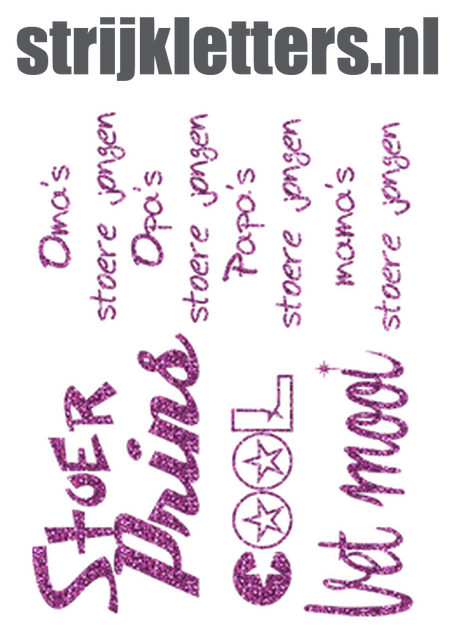 strijkletters.nl
Oma's
stoere jongen
Opa's
stoere jongen
Papa's
stoere jongen
mama's
stoere jongen
StoER
Prins
COOL
Vet mooi